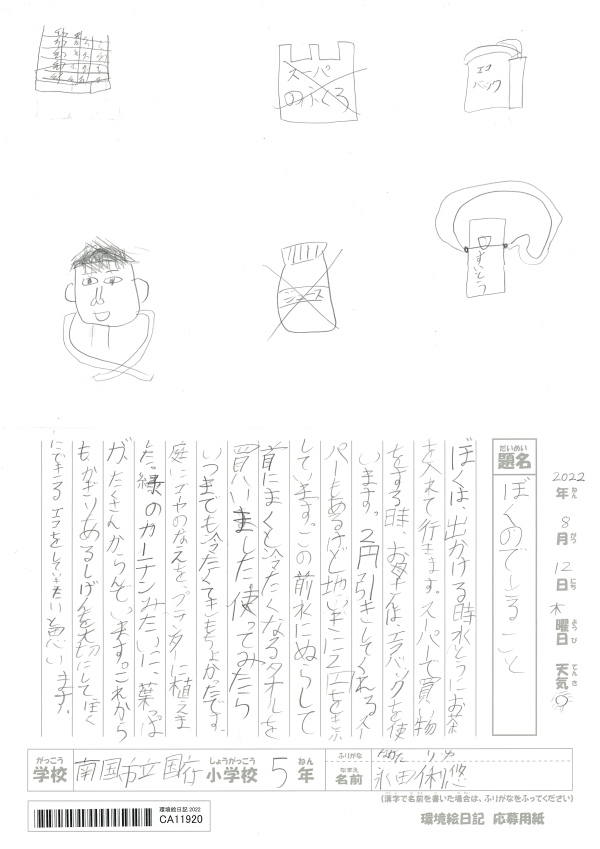 スーパ
のふくろ
エコ
バック
ジュース
すいとう
2022年 8月 12日 木曜日 天気
ねん がつ にち ようび てんき
だいめい
題名
ぼくのできること
ぼくは、出かける時水とうにお茶
を入れて行きます。スーパーで買い物
をする時、お母さんは、エコバックを使
います。2円引きしてくれるスー
パーもあるけど地いきに2円を
しています。この前水にぬらして
首にまくと冷たくなるタオルを
買いました。使ってみたら
いつまでも冷たくてきもちよかったです。
庭にゴヤのなえを、プランターに植えま
した。緑のカーテンみたいに、葉っぱ
が、たくさんからんでいます。これから
もかぎりあるしげんを大切にしてぼく
にできるエコをしていきたいと思います。
がっこう しょうがっこう ねん
学校 南国市立国府小学校 5年
ふりがな
なまえ
名前 永田
(漢字で名前を書いた場合は、ふりがなをふってください)
環境絵日記 2022
CA11920
環境絵日記 応募用紙